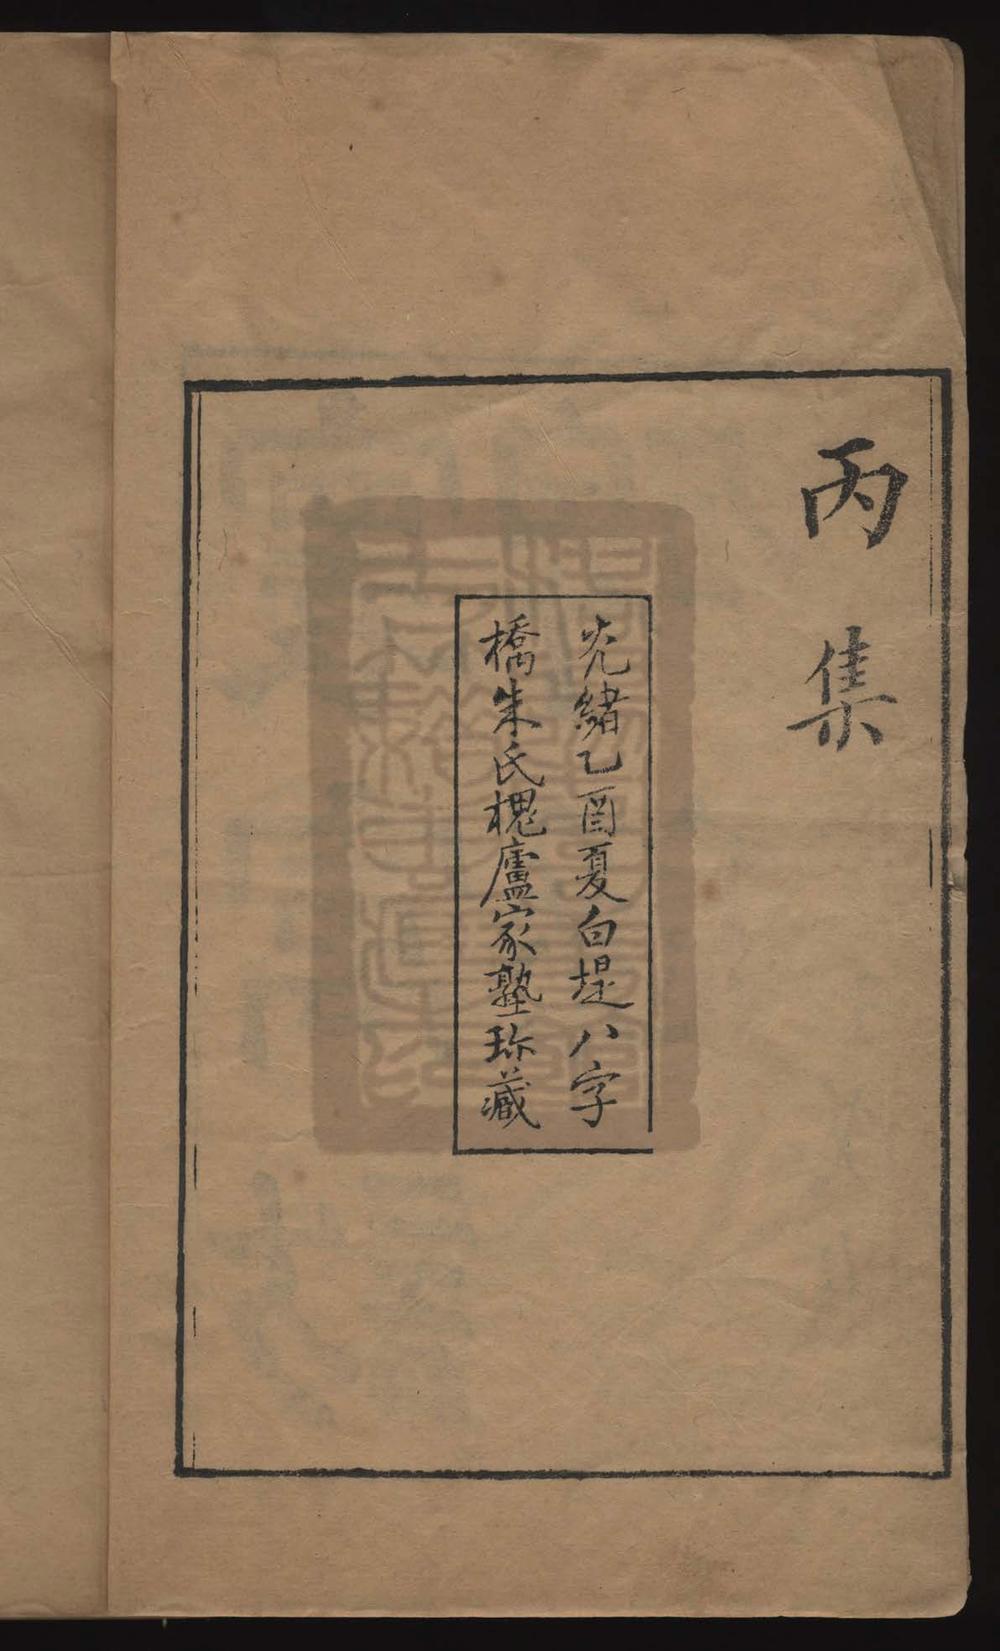 丙集
光緒乙酉夏白堤八字
橋朱氏槐廬家塾珍藏